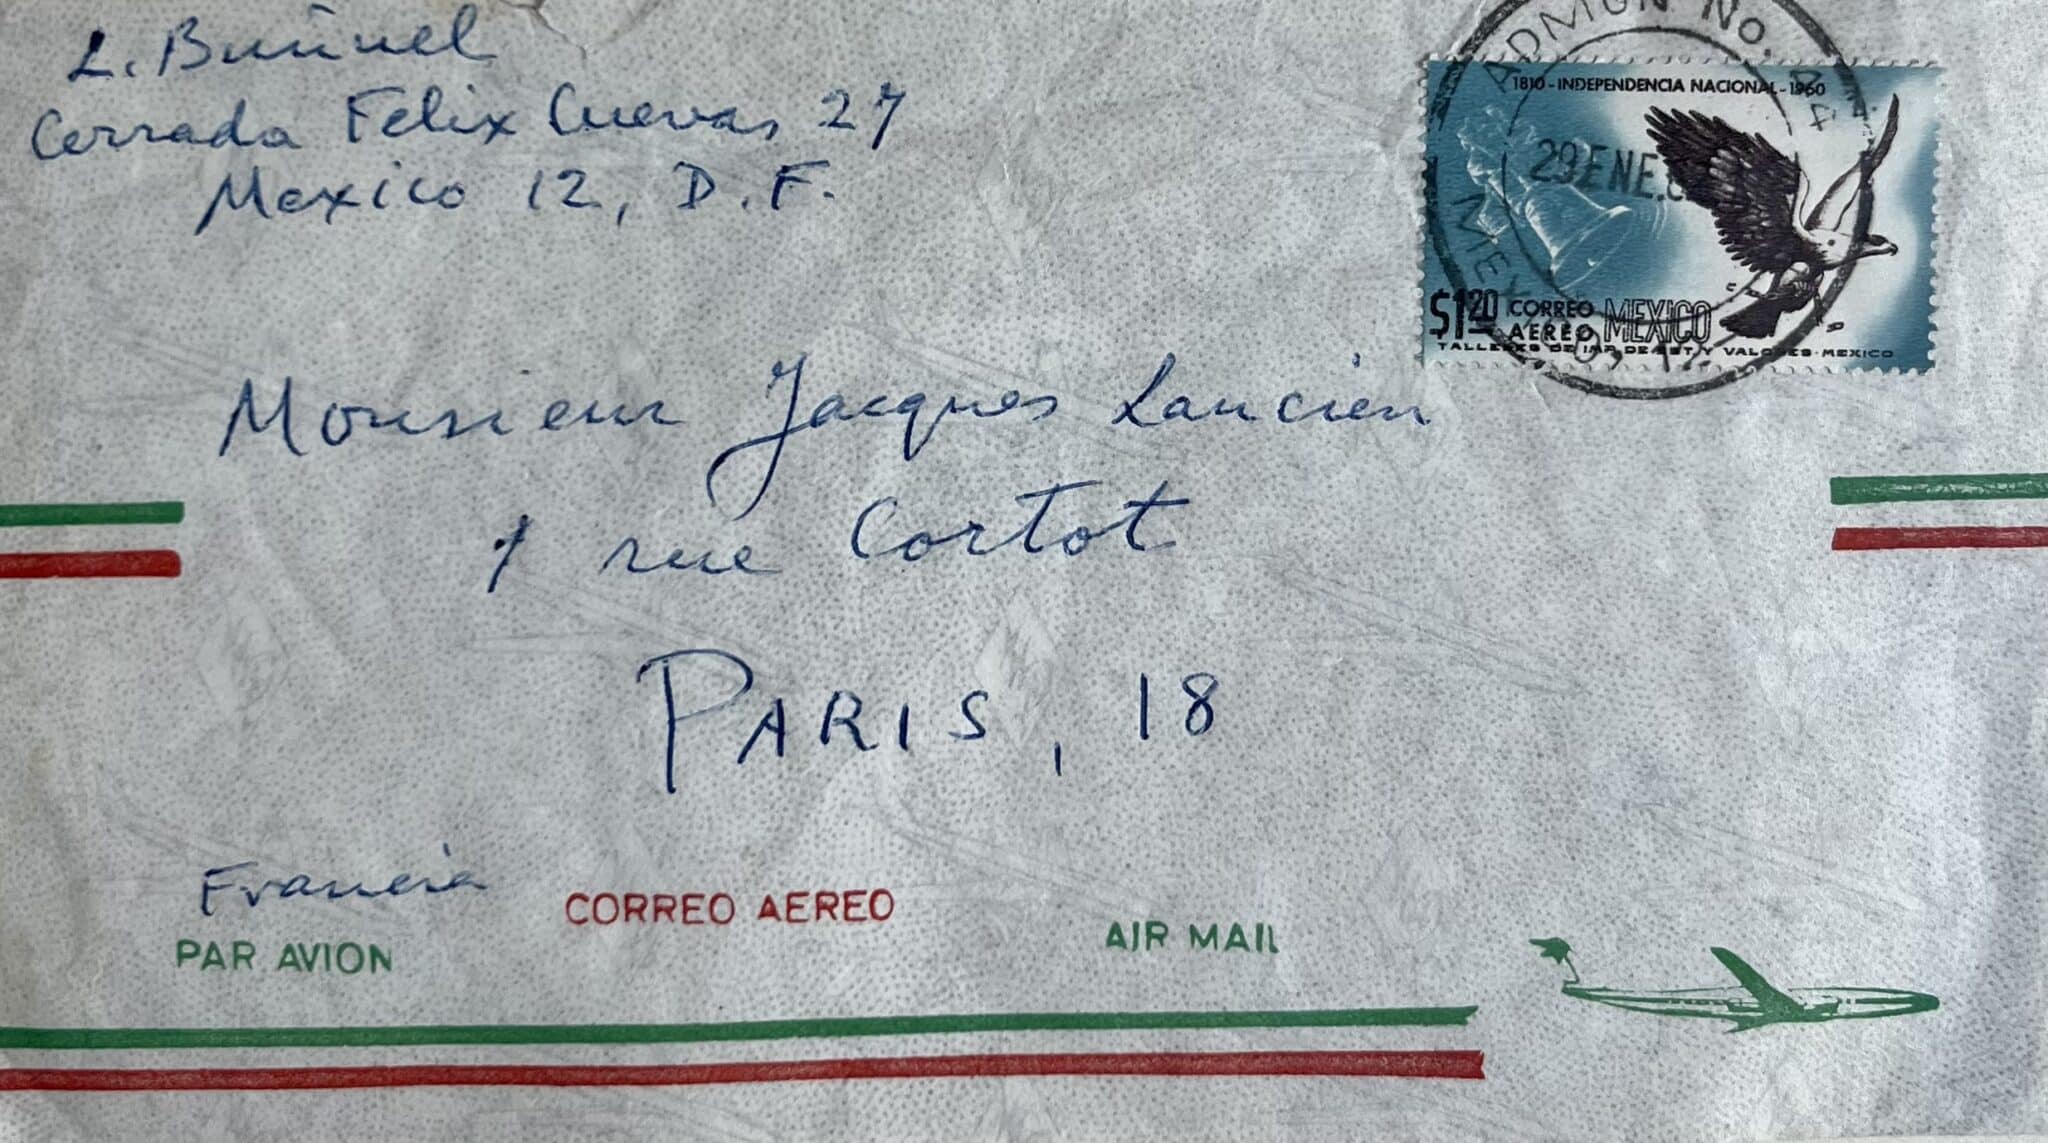 L. Buñuel
Cerrada Felix Cuevas 27
Mexico 12, D.F.
ADMON No.
MEX
29 ENE.
1810-INDEPENDENCIA NACIONAL-1960
$1.20 CORREO AEREO MEXICO
TALLERES DE IMP. DE EST. Y VALORES-MEXICO
Monsieur Jacques Lancien
1 rue Cortot
PARIS, 18
Francia
PAR AVION
CORREO AEREO
AIR MAIL